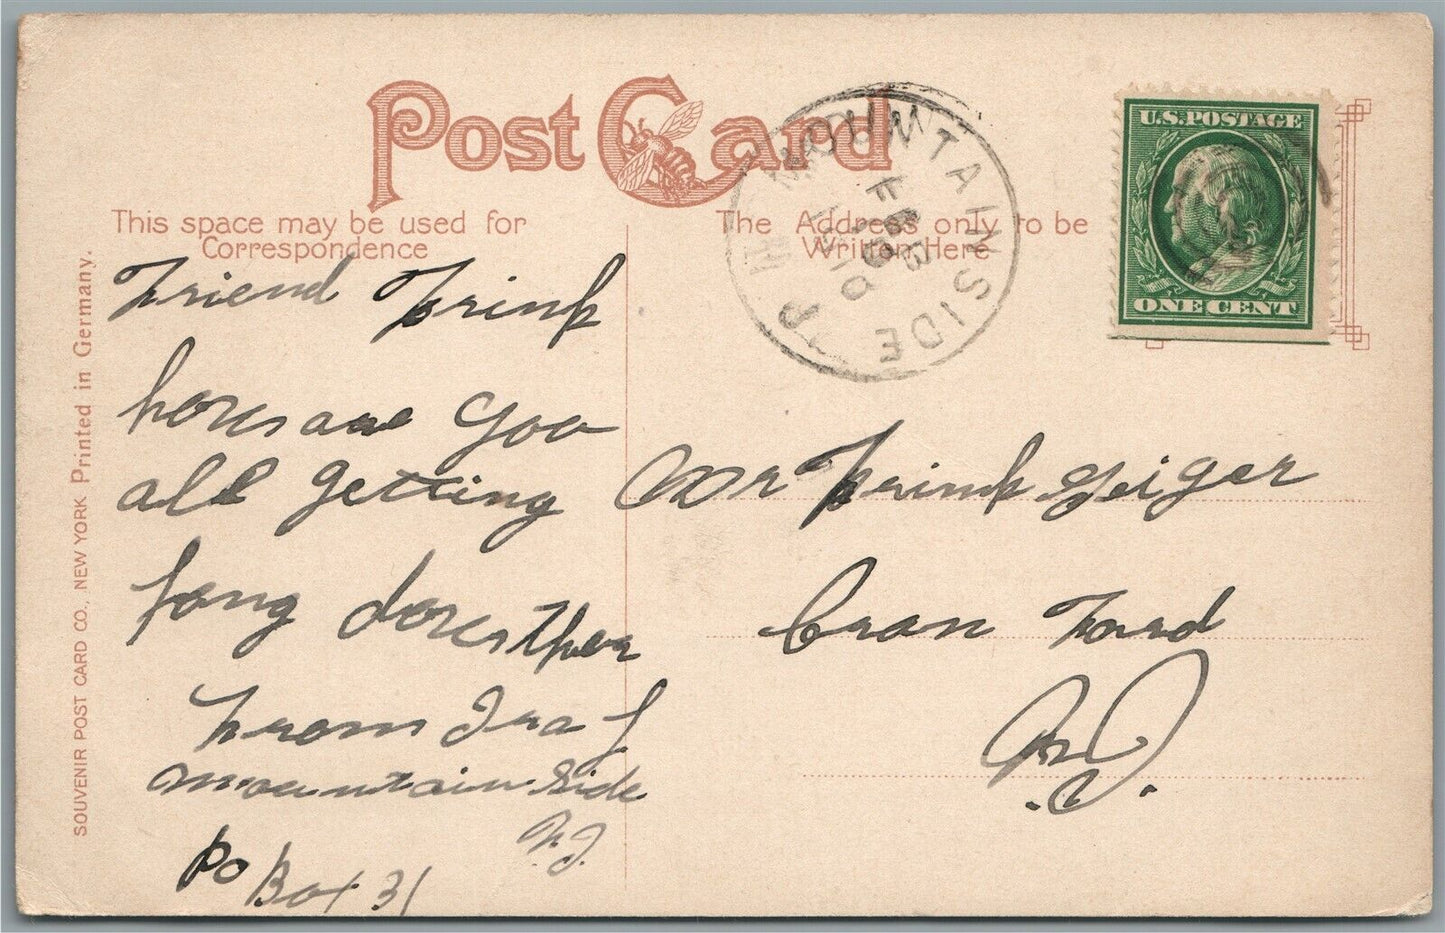 Post Card
This space may be used for
Correspondence
The Address only to be
Written Here
MOUNTAINSIDE N J
FEB
1910
U.S. POSTAGE
ONE CENT
Friend Frink
hores are you
all getting
fong dores ther
from Ira J
mountain side
N.J.
PO Box 31
Mr Frink Geiger
Cran Ford
N.J.
SOUVENIR POST CARD CO., NEW YORK Printed in Germany.